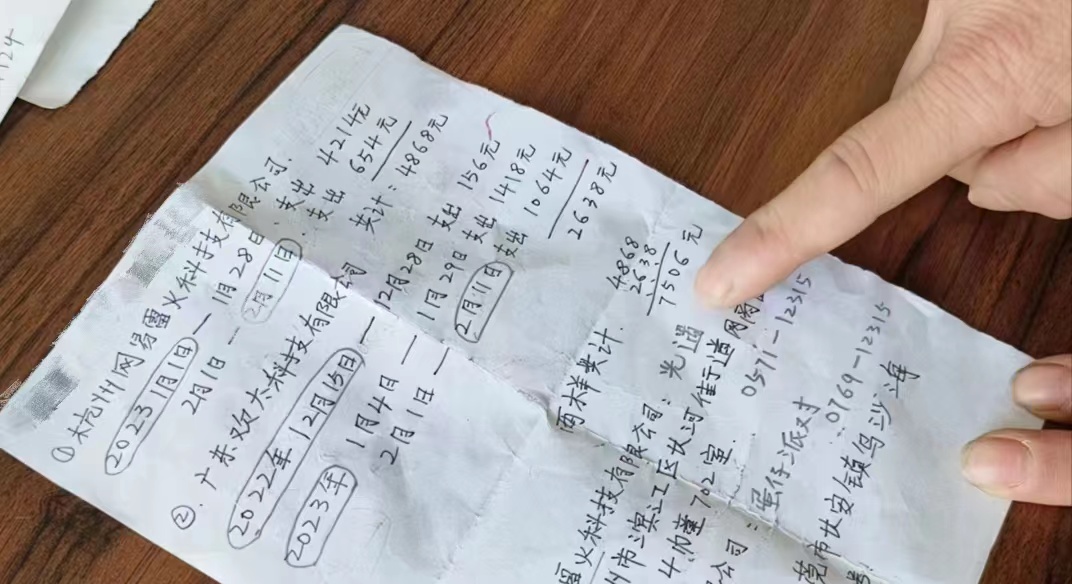 124
① 杭州网易雷火科技有限公司.
2023 1月1日 — 1月28日. 支出 4214元
2月1日 — 2月11日. 支出 654元
共计: 4868元
②. 广东欢太科技有限公司
2022年 12月15日 — 12月28日 支出 156元
2023年 1月4日 — 1月29日 支出 1418元
2月1日 — 2月11日 支出 1064元
2638元
两样共计. 4868
2638
7506元
雷火科技有限公司: 光遇
州市滨江区长河街道网商
4幢 702室. 0571-12315
公司: 蛋仔派对
: 0769-12315
莞市长安镇乌沙海
号